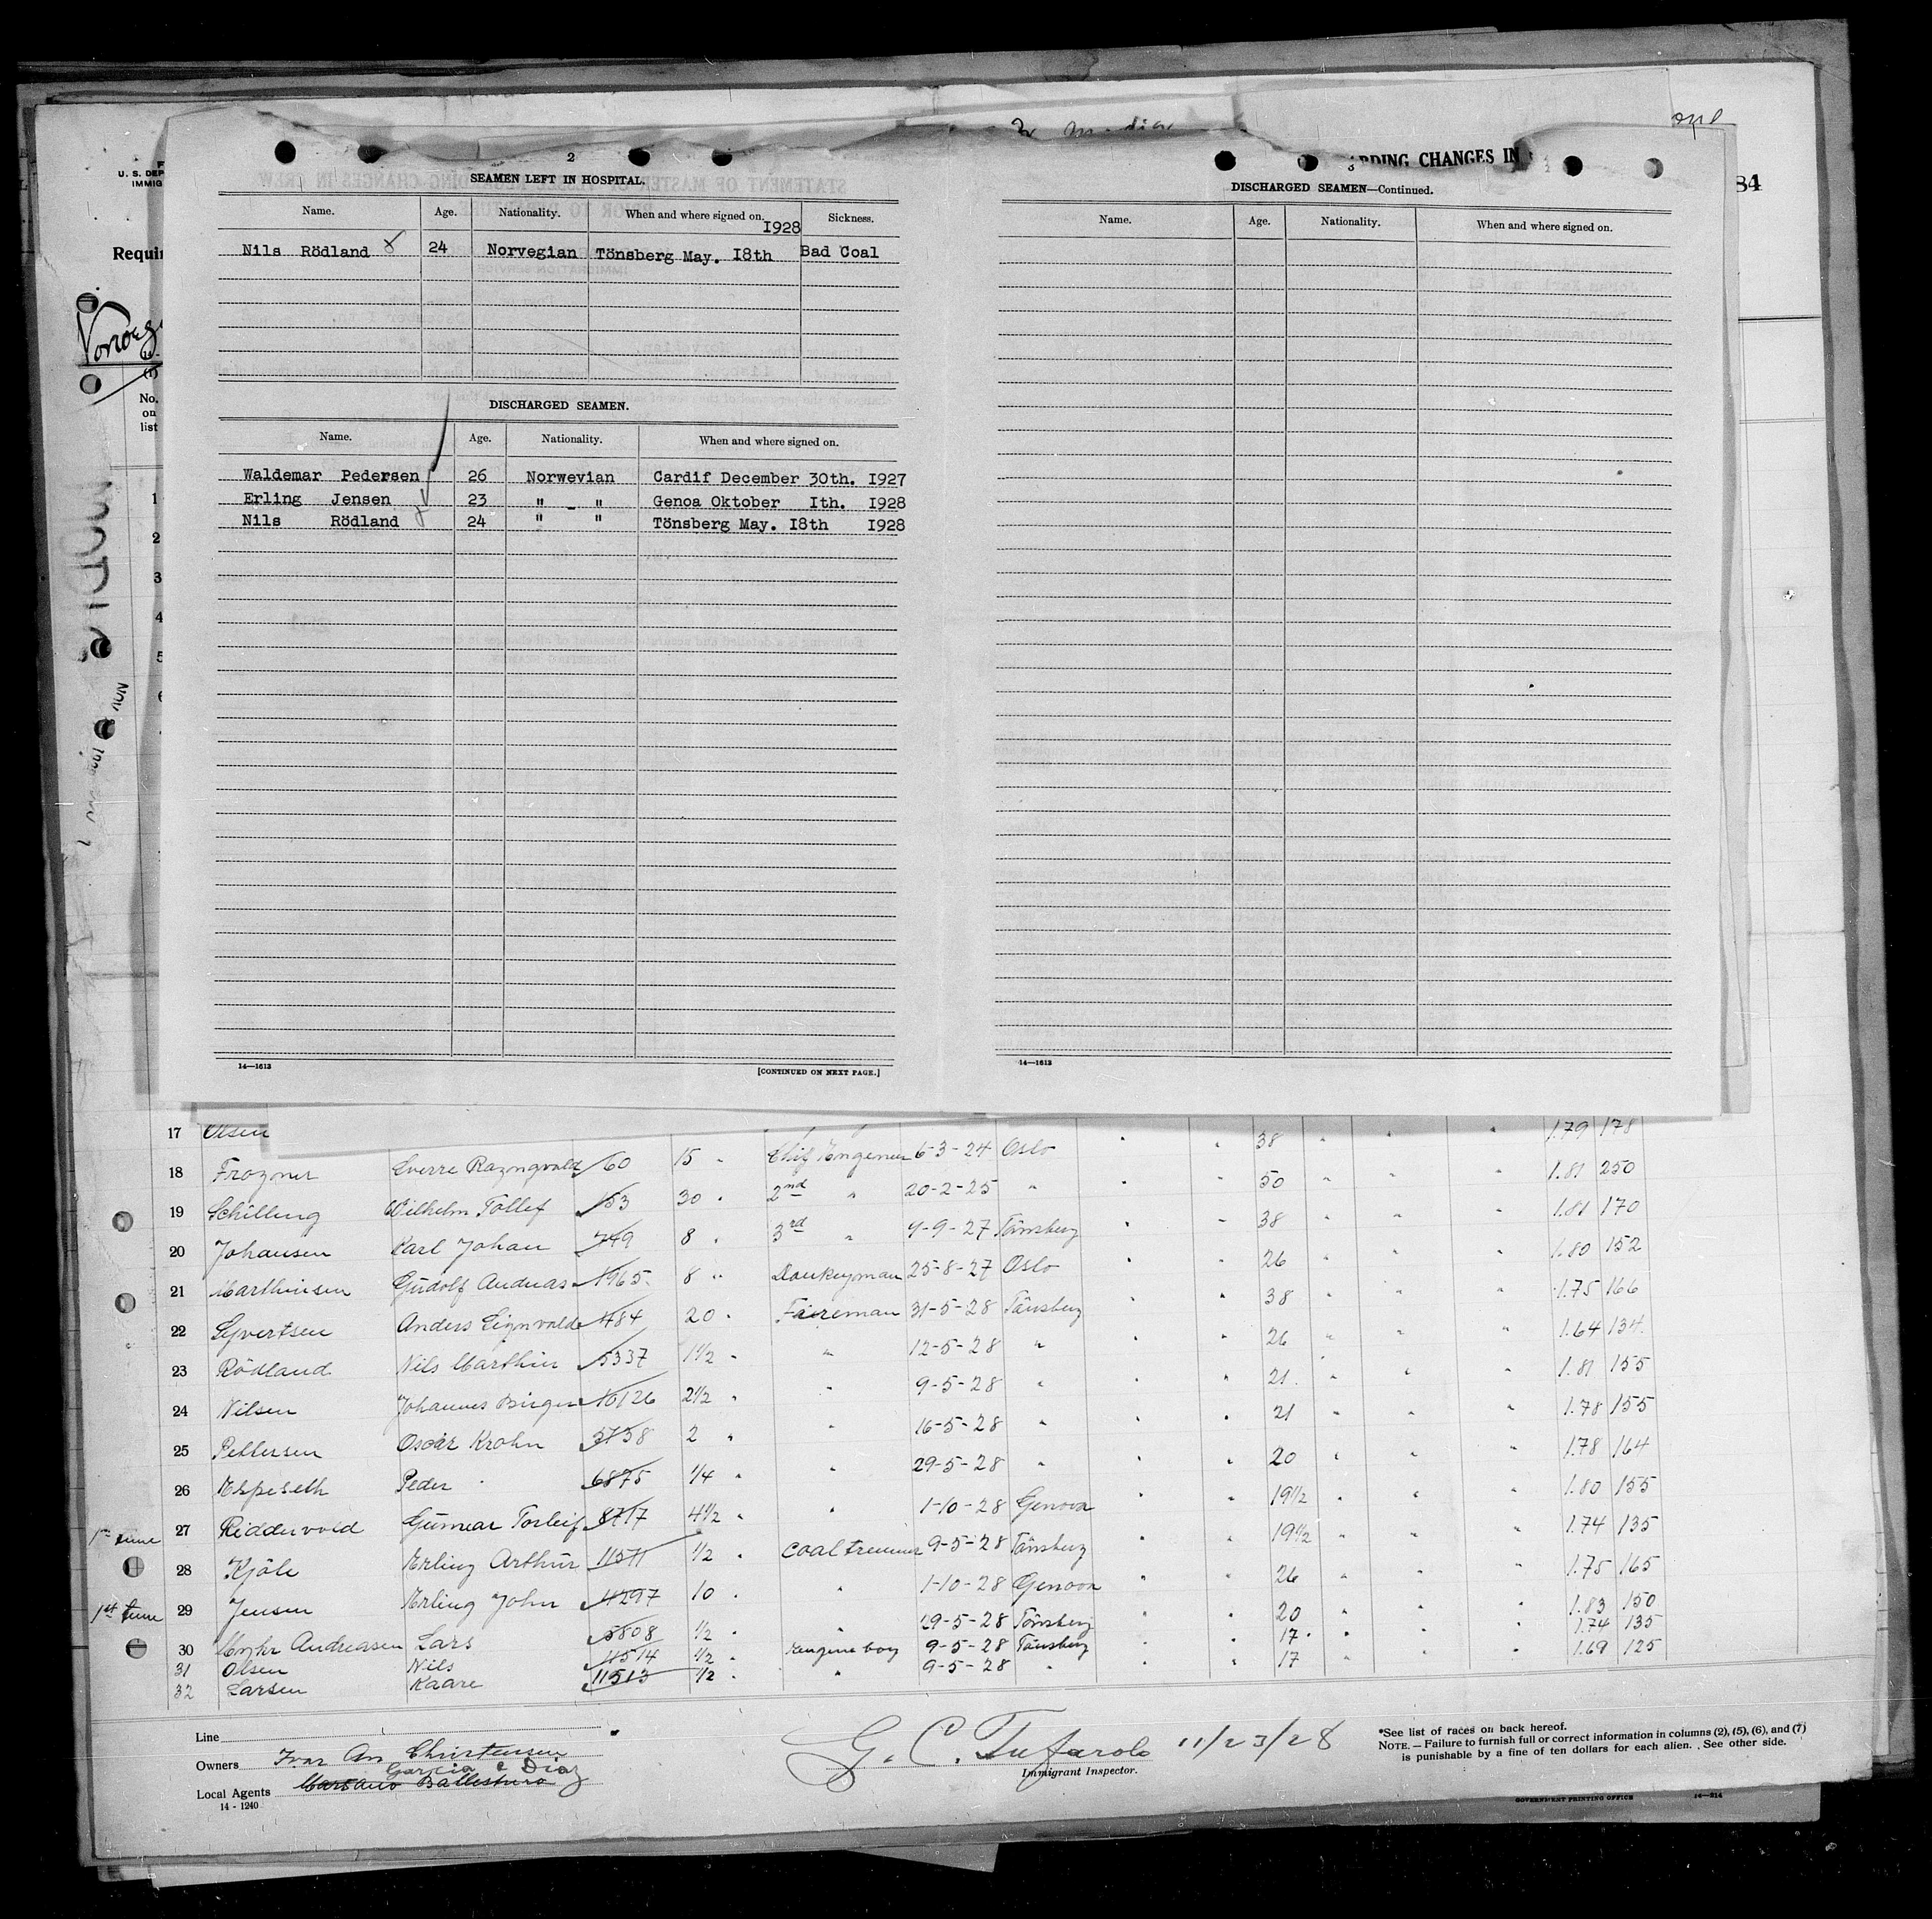 2
SEAMEN LEFT IN HOSPITAL.
Name. Age. Nationality. When and where signed on. Sickness.
1928
Nils Rödland 24 Norvegian Tönsberg May. I8th Bad Coal
DISCHARGED SEAMEN.
Name. Age. Nationality. When and where signed on.
Waldemar Pedersen 26 Norwevian Cardif December 30th. I927
Erling Jensen 23 " - " Genoa Oktober Ith. I928
Nils Rödland 24 " " Tönsberg May. I8th I928
14—1613 [CONTINUED ON NEXT PAGE.]
RDING CHANGES IN
3
DISCHARGED SEAMEN—Continued.
Name. Age. Nationality. When and where signed on.
14—1613
84
U. S. DEP
IMMIG
Requir
(1)
No.
on
list
1
2
3
4
5
6
17 Olsen 38 " " " 1.79 178
18 Frogner Sverre Razngvald 60 15 " Chif Engeneer 6-3-24 Oslo " " 50 " " " 1.81 250
19 Schilling Wilhelm Tollef 153 30 " 2nd " 20-2-25 " " " 38 " " " 1.81 170
20 Johansen Karl Johan 749 8 " 3rd " 7-9-27 Tönsberg " " 26 " " " 1.80 152
21 Marthinsen Gudolf Andreas 1965 8 " Donkeyman 25-8-27 Oslo " " 38 " " " 1.75 166
22 Syvertsen Anders Signvald 1484 20 " Faireman 31-5-28 Tönsberg " " 26 " " " 1.64 134
23 Rödland Nils Marthin 5337 1 1/2 " " 12-5-28 " " " 21 " " " 1.81 155
24 Nilsen Johannes Birger 10126 2 1/2 " " 9-5-28 " " " 21 " " " 1.78 155
25 Pettersen Oscar Krohn 3738 2 " " 16-5-28 " " " 20 " " " 1.78 164
26 Espeseth Peder 6875 1/4 " " 29-5-28 " " " 19 1/2 " " " 1.80 155
27 Riddervold Gunnar Torleif 8717 4 1/2 " " 1-10-28 Genova " " 19 1/2 " " " 1.74 135
28 Kjöle Erling Arthur 11511 1/2 " Coaltremmer 9-5-28 Tönsberg " " 26 " " " 1.75 165
1st time 29 Jensen Erling John 4297 10 " " 1-10-28 Genova " " 20 " " " 1.83 150
30 Myhr Andreasen Lars 5808 1/2 " " 29-5-28 Tönsberg " " 17 " " " 1.74 135
31 Olsen Nils 11514 1/2 " Engine boy 9-5-28 Tönsberg " " 17 " " " 1.69 125
32 Larsen Kaare 11513 1/2 " " 9-5-28 "
Line
Owners Ivar An Christensen
Garcia & Diaz
Local Agents Marsano Ballestrero
14 - 1240
G. C. Tufarolo 11/23/28
Immigrant Inspector.
*See list of races on back hereof.
NOTE.—Failure to furnish full or correct information in columns (2), (5), (6), and (7)
is punishable by a fine of ten dollars for each alien. See other side.
GOVERNMENT PRINTING OFFICE 14—214